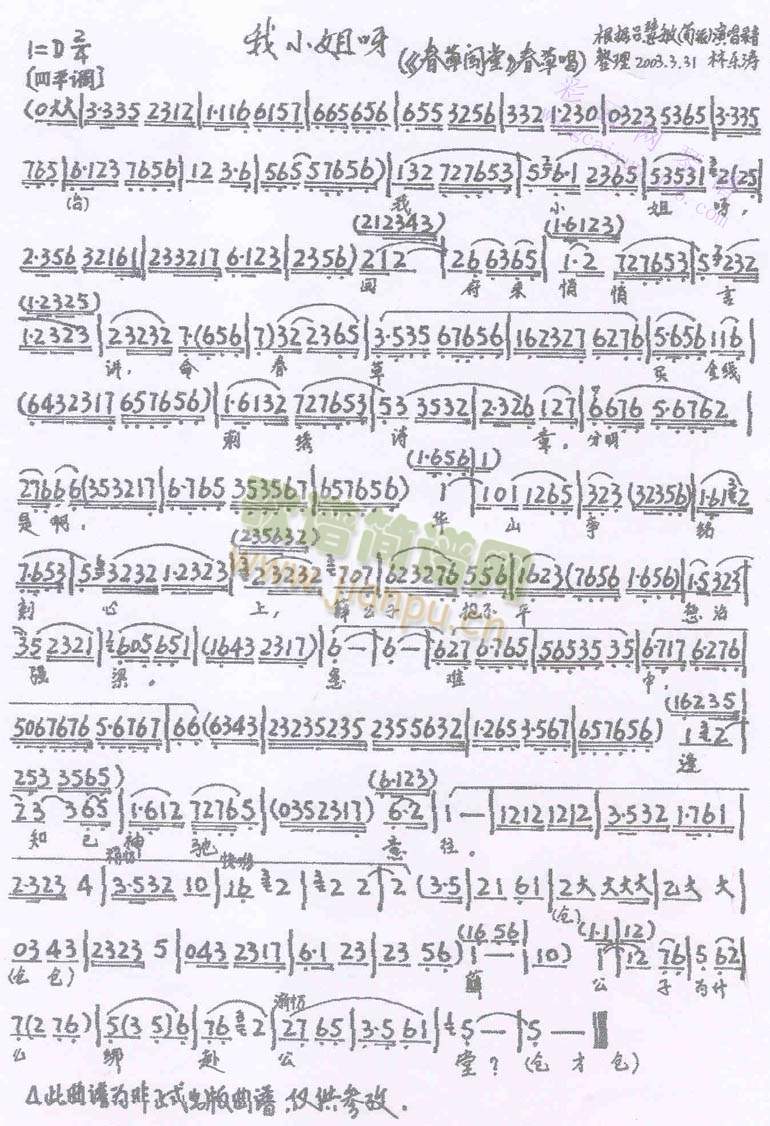 我小姐呀
1=D 2/4
(《春草闯堂》春草唱)
根据吕慧敏(荀派)演唱录音
整理 2003.3.31 林东涛
[四平调]
(0大大|3·335 2312|1·116 6157|665656|655 3256|332 1·230|0323 5365|3·335
765|6·123 7656|12 3·6|565 57656)|132 727653|5 6·1 2365|53531 2(25|
(台) 我 小 姐 呀,
(212343) (1·6123)
2·356 32161|233217 6·123|2356) 212|26 6365|1·2 727653|5 3232
回 府 来 悄 悄 言
(1·2325)
1·2323|23232 7·(656|7)32 2365|3·535 67656|162327 6276|5·656 116|
讲, 命 春 草 买 金线
(6432317 657656)|1·6132 727653|53 3532|2·326 127|6676 5·6762|
刺 绣 诗 章. 分明
(1·656|1)
2766 6(353217|6·765 353567|657656) 1|101 1265|323 (32356)|1·61 2
是啊, 华 山 争 给
(235632)
7·653|5 3232 1·2323|23232 707|623276 556|1623(7656 1·656)|1·5323|
心 上, 薛公子 抱不平 惩治
35 2321|605651|(1643 2317)|6—|6—|627 6·765|56535 35|6·717 6·276|
强 梁. 急 难 中,
(16235|
5067676 5·6767|66(6343|23235235 2355632|1·265 3·567|657656) 1 2
逢
253 3565) (6·123)
23 365|1·612 72765|(0352317) 6·2|1—|1212 1212|3·532 1·761|
知 己 神 驰 意 往.
稍慢 快些
2·323 4|3·532 10|16 2|2 2|2 (3·5|21 61|2大 大大大|乙大 大|
(仓)
(16 56| (1·1|12)
03 43|2323 5|043 2317|6·1 23|23 56) 1—|10) 1|12 76|5 62|
(仓 仓) 薛 公 子 为什
渐慢
7(2 76)|5(3 5)6|76 2|27 65|3·5 61|5—|5—‖
么 绑 赴 公 堂? (仓 才 仓)
△此曲谱为非正式出版曲谱.仅供参改.
歌谱简谱网
www.jianpu.cn